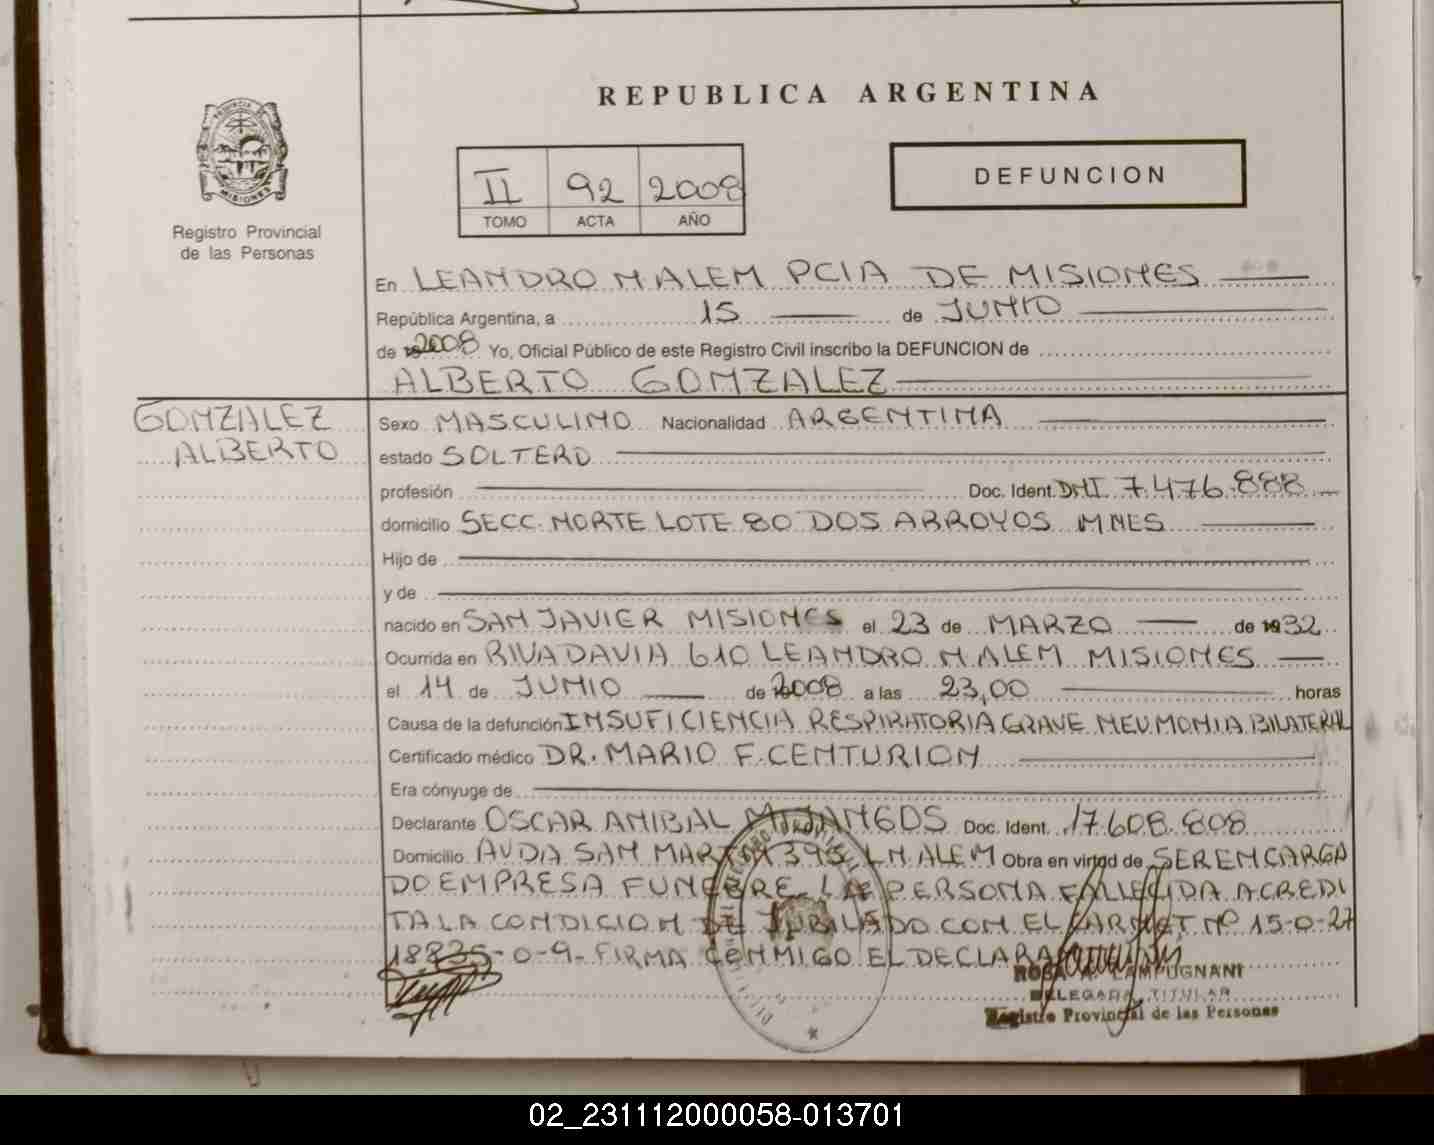 REPUBLICA ARGENTINA
PROVINCIA DE
MISIONES
Registro Provincial
de las Personas
II 92 2008
TOMO ACTA AÑO
DEFUNCION
En LEANDRO N ALEM PCIA DE MISIONES
República Argentina, a 15 de JUNIO
de 2008 Yo, Oficial Público de este Registro Civil inscribo la DEFUNCION de
ALBERTO GONZALEZ
GONZALEZ
ALBERTO
Sexo MASCULINO Nacionalidad ARGENTINA
estado SOLTERO
profesión Doc. Ident. DNI 7.476.888
domicilio SECC. NORTE LOTE 80 DOS ARROYOS MNES
Hijo de
y de
nacido en SAN JAVIER MISIONES el 23 de MARZO de 1932
Ocurrida en RIVADAVIA 610 LEANDRO N ALEM MISIONES
el 14 de JUNIO de 2008 a las 23,00 horas
Causa de la defunción INSUFICIENCIA RESPIRATORIA GRAVE NEUMONIA BILATERAL
Certificado médico DR. MARIO F. CENTURION
Era cónyuge de
Declarante OSCAR ANIBAL MIJANGOS Doc. Ident. 17.608.808
Domicilio AVDA SAN MARTIN 395 L N ALEM Obra en virtud de SER ENCARGA
DO EMPRESA FUNEBRE- LA PERSONA FALLECIDA ACREDI
TA LA CONDICION DE JUBILADO CON EL CARNET Nº 15-0-27
18835-0-9- FIRMA CONMIGO EL DECLARA
ROSA A. LAMPUGNANI
DELEGADA TITULAR
Registro Provincial de las Personas
02_231112000058-013701